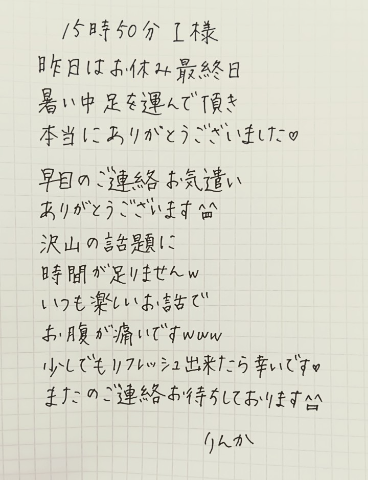 15時50分 I様
昨日はお休み最終日
暑い中足を運んで頂き
本当にありがとうございました♡
早目のご連絡お気遣い
ありがとうございます^^
沢山の話題に
時間が足りませんw
いつも楽しいお話で
お腹が痛いですwww
少しでもリフレッシュ出来たら幸いです♡
またのご連絡お待ちしております^^
りんか